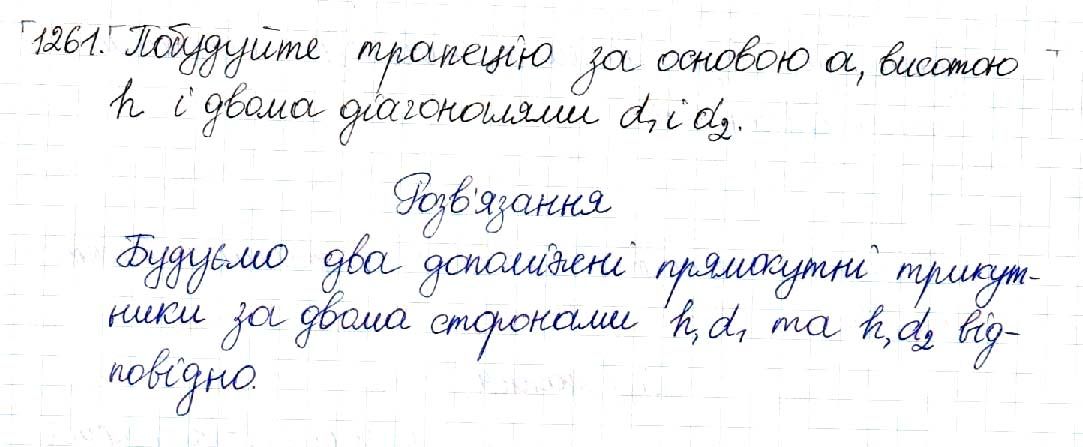 1261. Побудуйте трапецію за основою a, висотою
h і двома діагоналями d₁ і d₂.
Розв'язання
Будуємо два допоміжні прямокутні трикут-
ники за двома сторонами h, d₁ та h, d₂ від-
повідно.